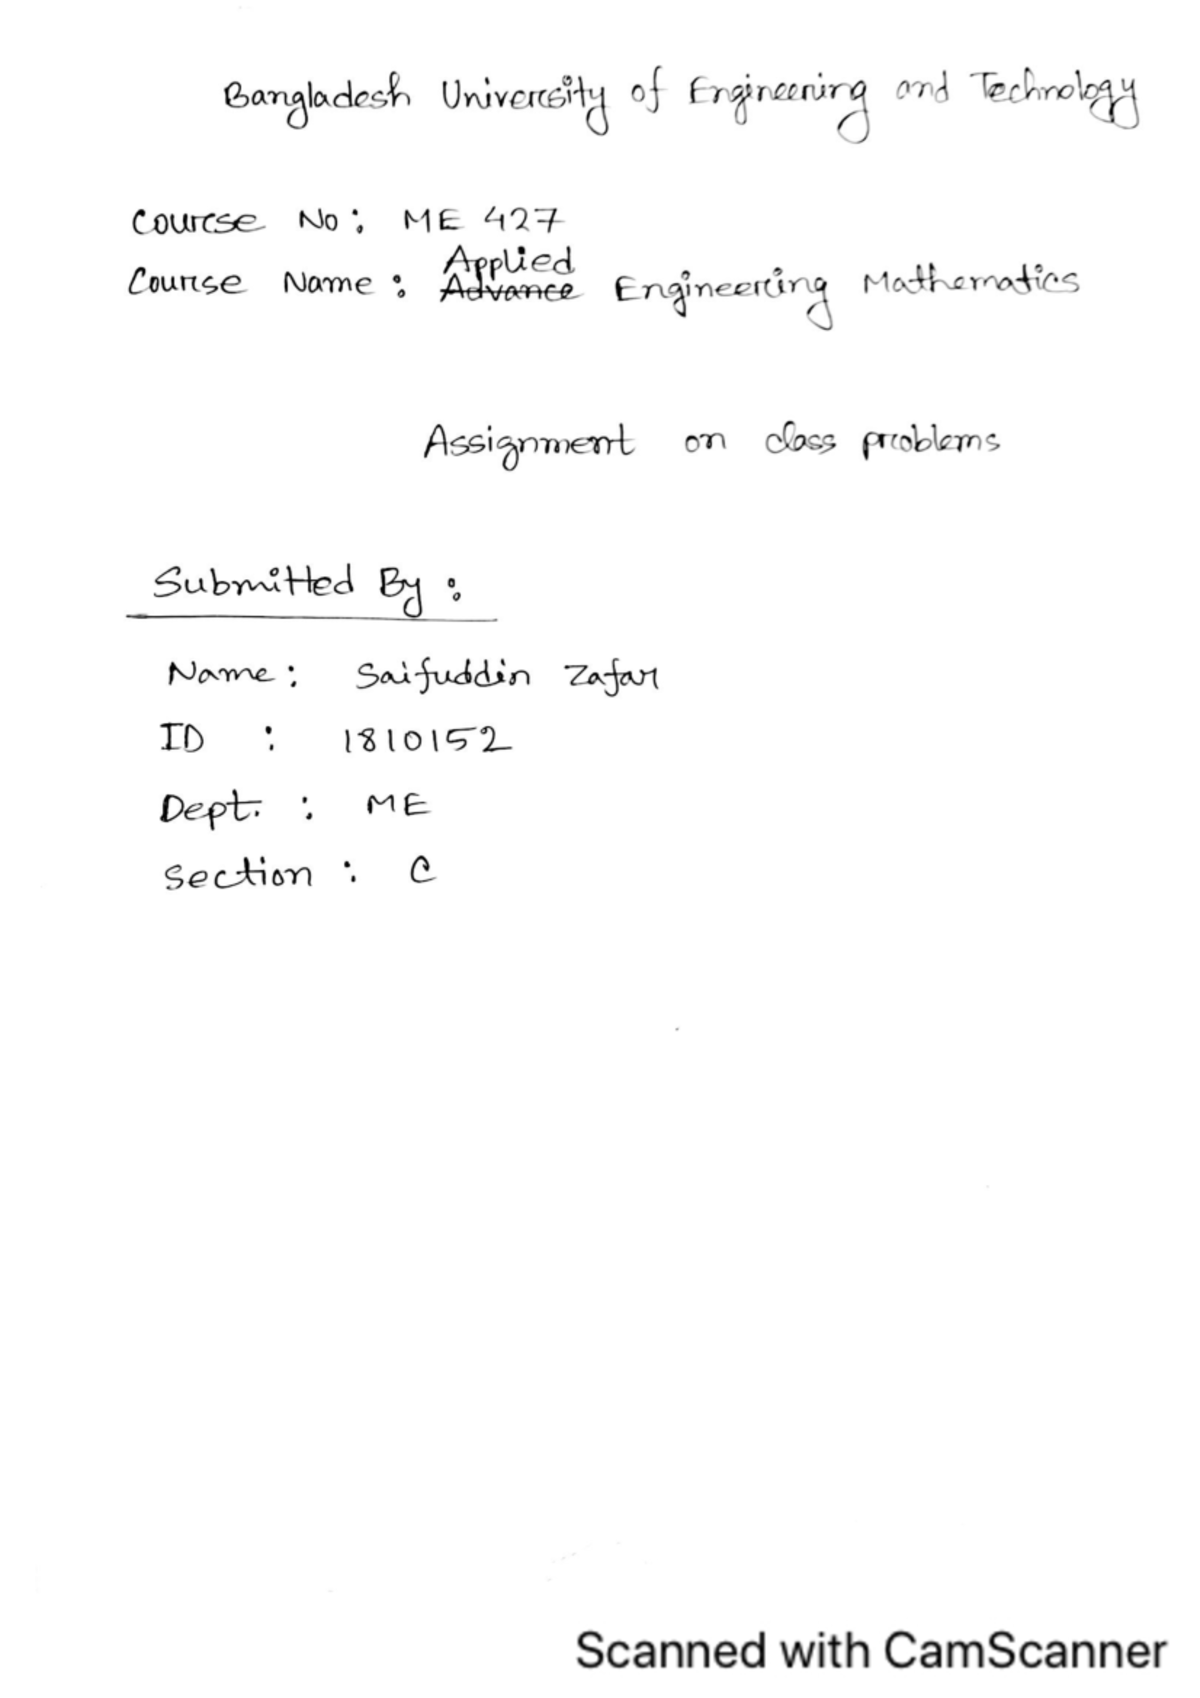 Bangladesh University of Engineering and Technology
Course No: ME 427
Applied
Course Name: Advance Engineering Mathematics
Assignment on class problems
Submitted By:
Name: Saifuddin Zafar
ID : 1810152
Dept. : ME
Section : C
Scanned with CamScanner